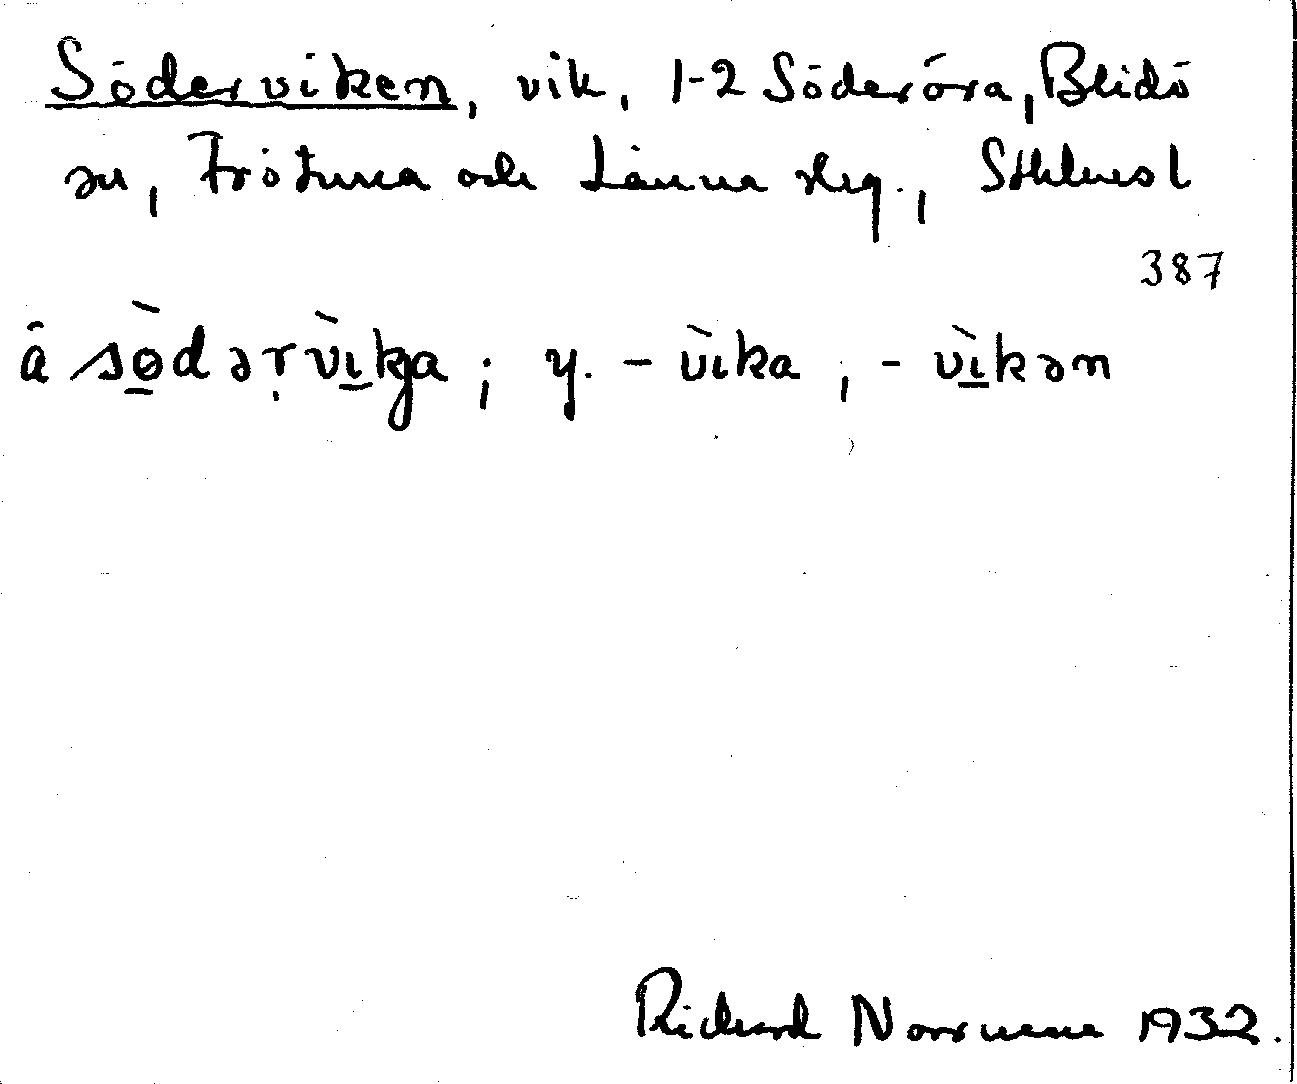 Söderviken, vik, 1-2 Söderöra, Blidö
sn, Frötuna och Länna skg., Sthlms l
387
å sö̀dərvìkja ; y. - vìka , - vìkən
Richard Norrman 1932.